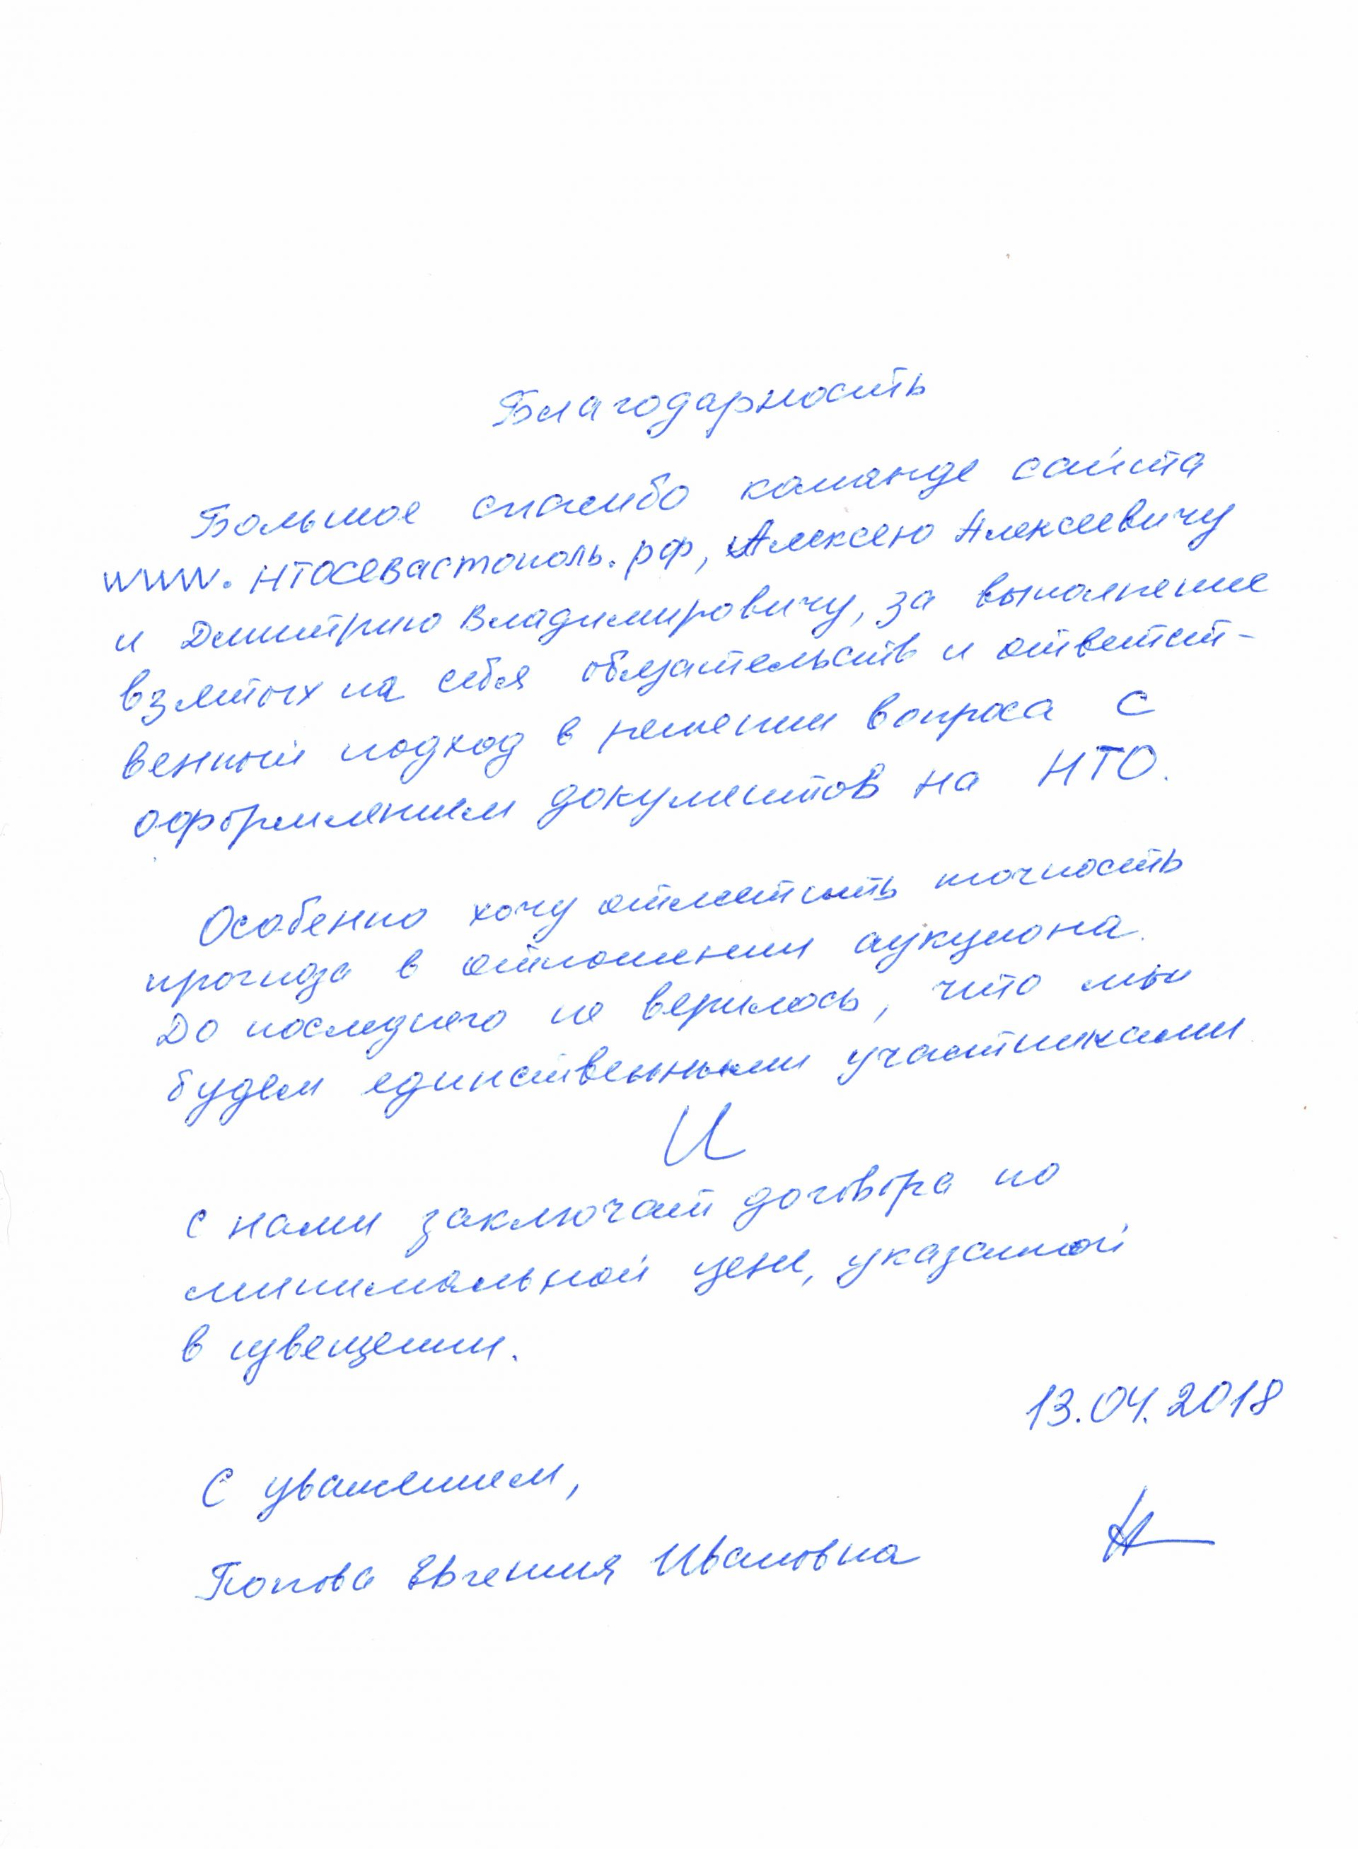 Благодарность
Большое спасибо команде сайта
www.НТОСЕВАСТОПОЛЬ.рф, Алексею Алексеевичу
и Дмитрию Владимировичу, за выполнение
взятых на себя обязательств и ответст-
венный подход в решении вопроса с
оформлением документов на НТО.
Особенно хочу отметить точность
прогноза в отношении аукциона.
До последнего не верилось, что мы
будем единственными участниками
И
с нами заключат договора по
минимальной цене, указанной
в извещении.
13.04.2018
С уважением,
Попова Евгения Ивановна